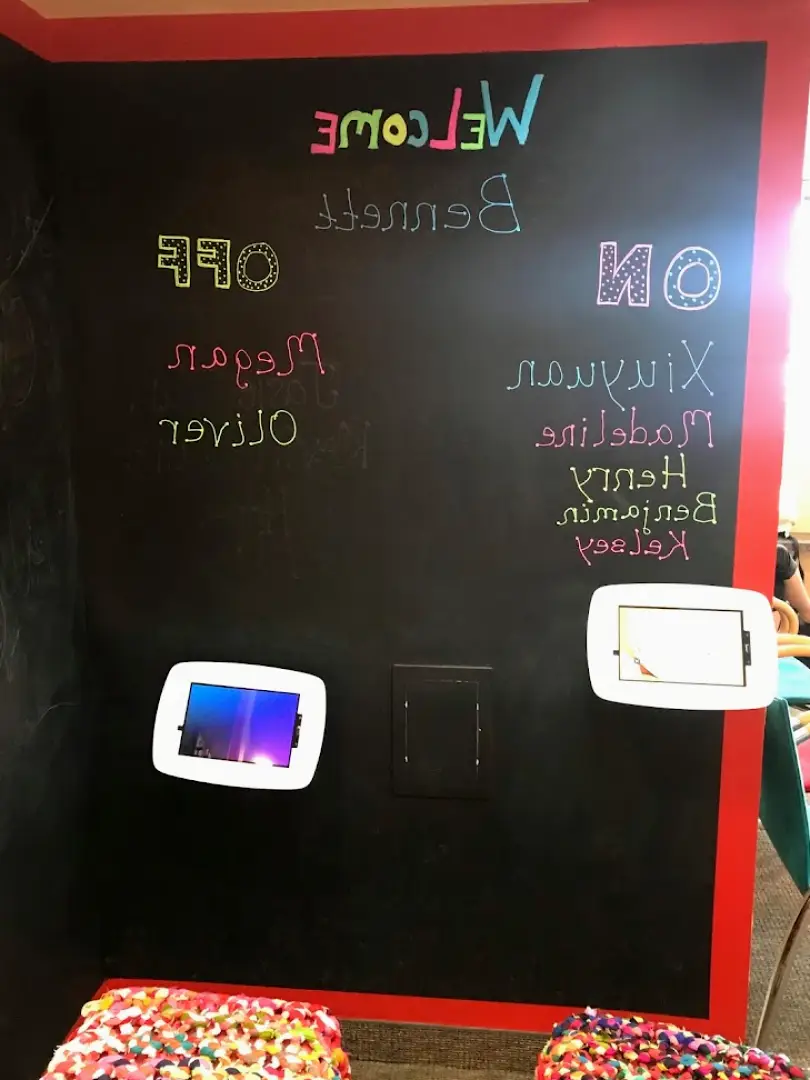 WELCOME
Bennett
ON
Xiuyuan
Madeline
Henry
Benjamin
Kelsey
OFF
Megan
Oliver